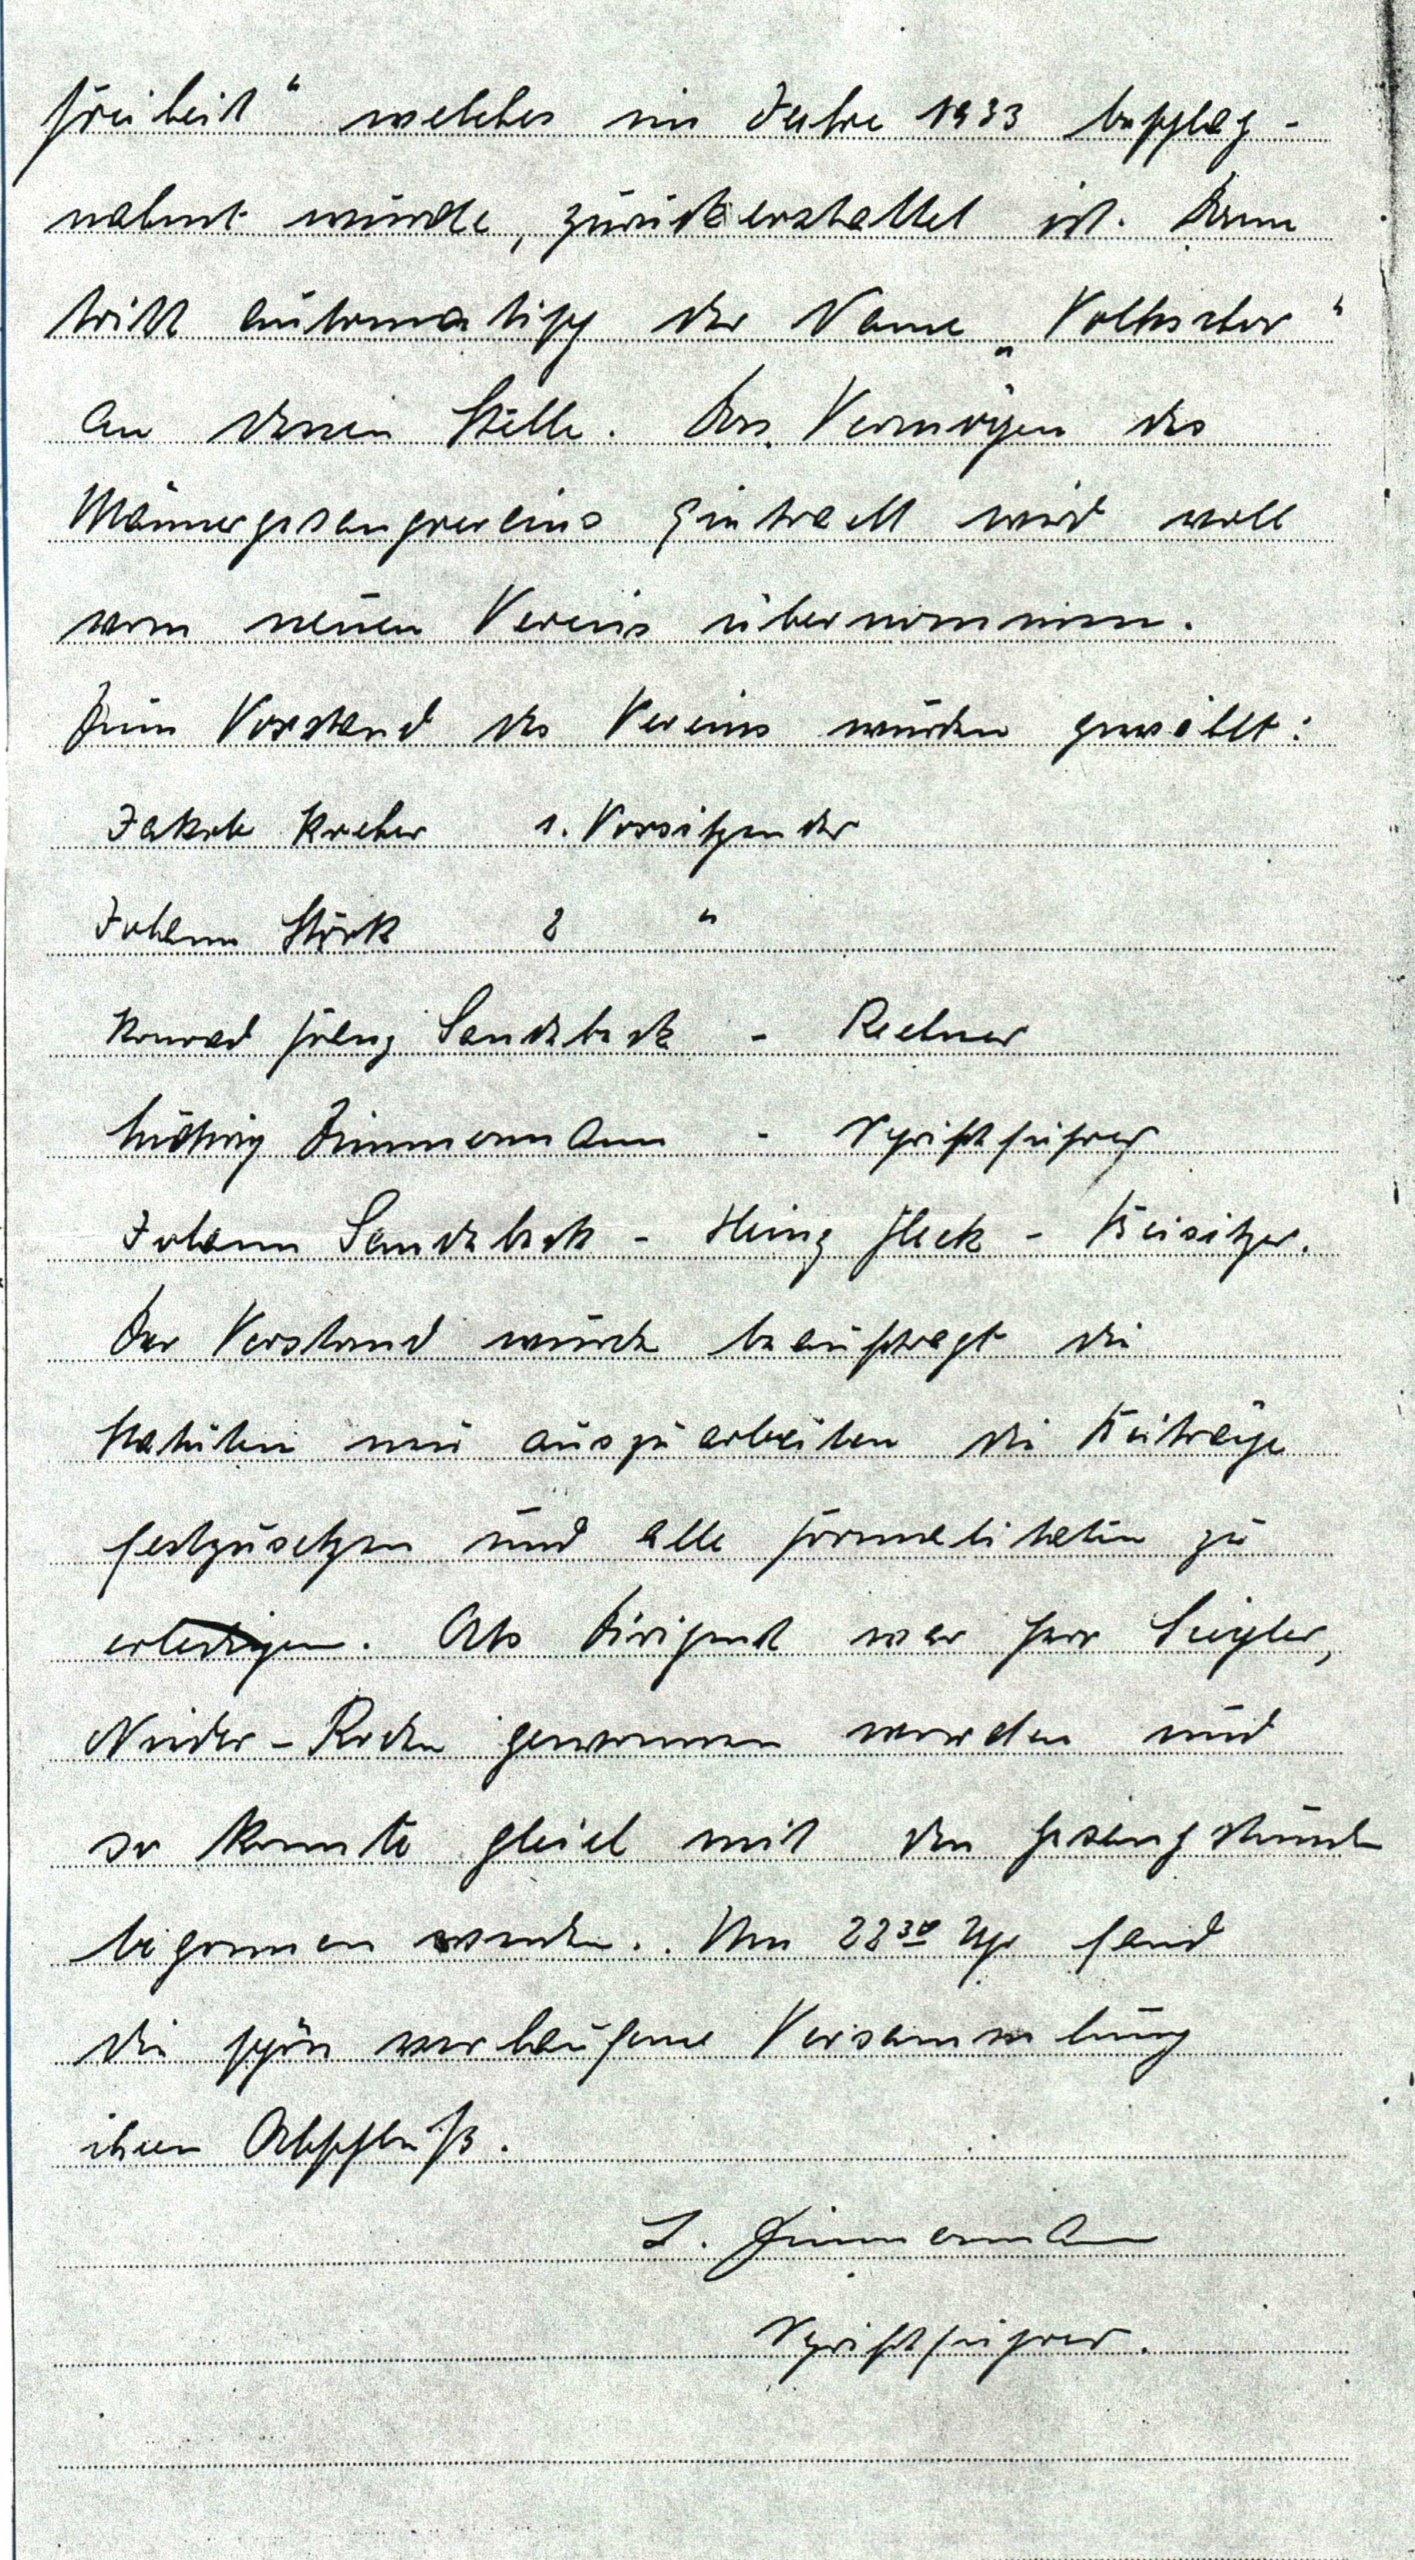 Freiheit" welches im Jahre 1933 beschlag-
nahmt wurde, zurückerstattet ist. Dann
tritt automatisch der Name „Volkschor"
an dessen Stelle. Das Vermögen des
Männergesangvereins Eintracht wird voll
vom neuen Verein übernommen.
Zum Vorstand des Vereins wurden gewählt:
Jakob Kreher 1. Vorsitzender
Johann Störk 2 "
Konrad Franz Sandhock - Rechner
Ludwig Zimmermann - Schriftführer
Johann Sandhock - Heinz Fleck - Beisitzer.
Der Vorstand wurde beauftragt die
Statuten neu auszuarbeiten die Beiträge
festzusetzen und alle Formalitäten zu
erledigen. Als Dirigent war Herr Siegler,
Nieder-Roden gewonnen worden und
so konnte gleich mit den Gesangstunden
begonnen werden. Um 22³⁰ Uhr fand
die schön verlaufene Versammlung
ihren Abschluß.
L. Zimmermann
Schriftführer.